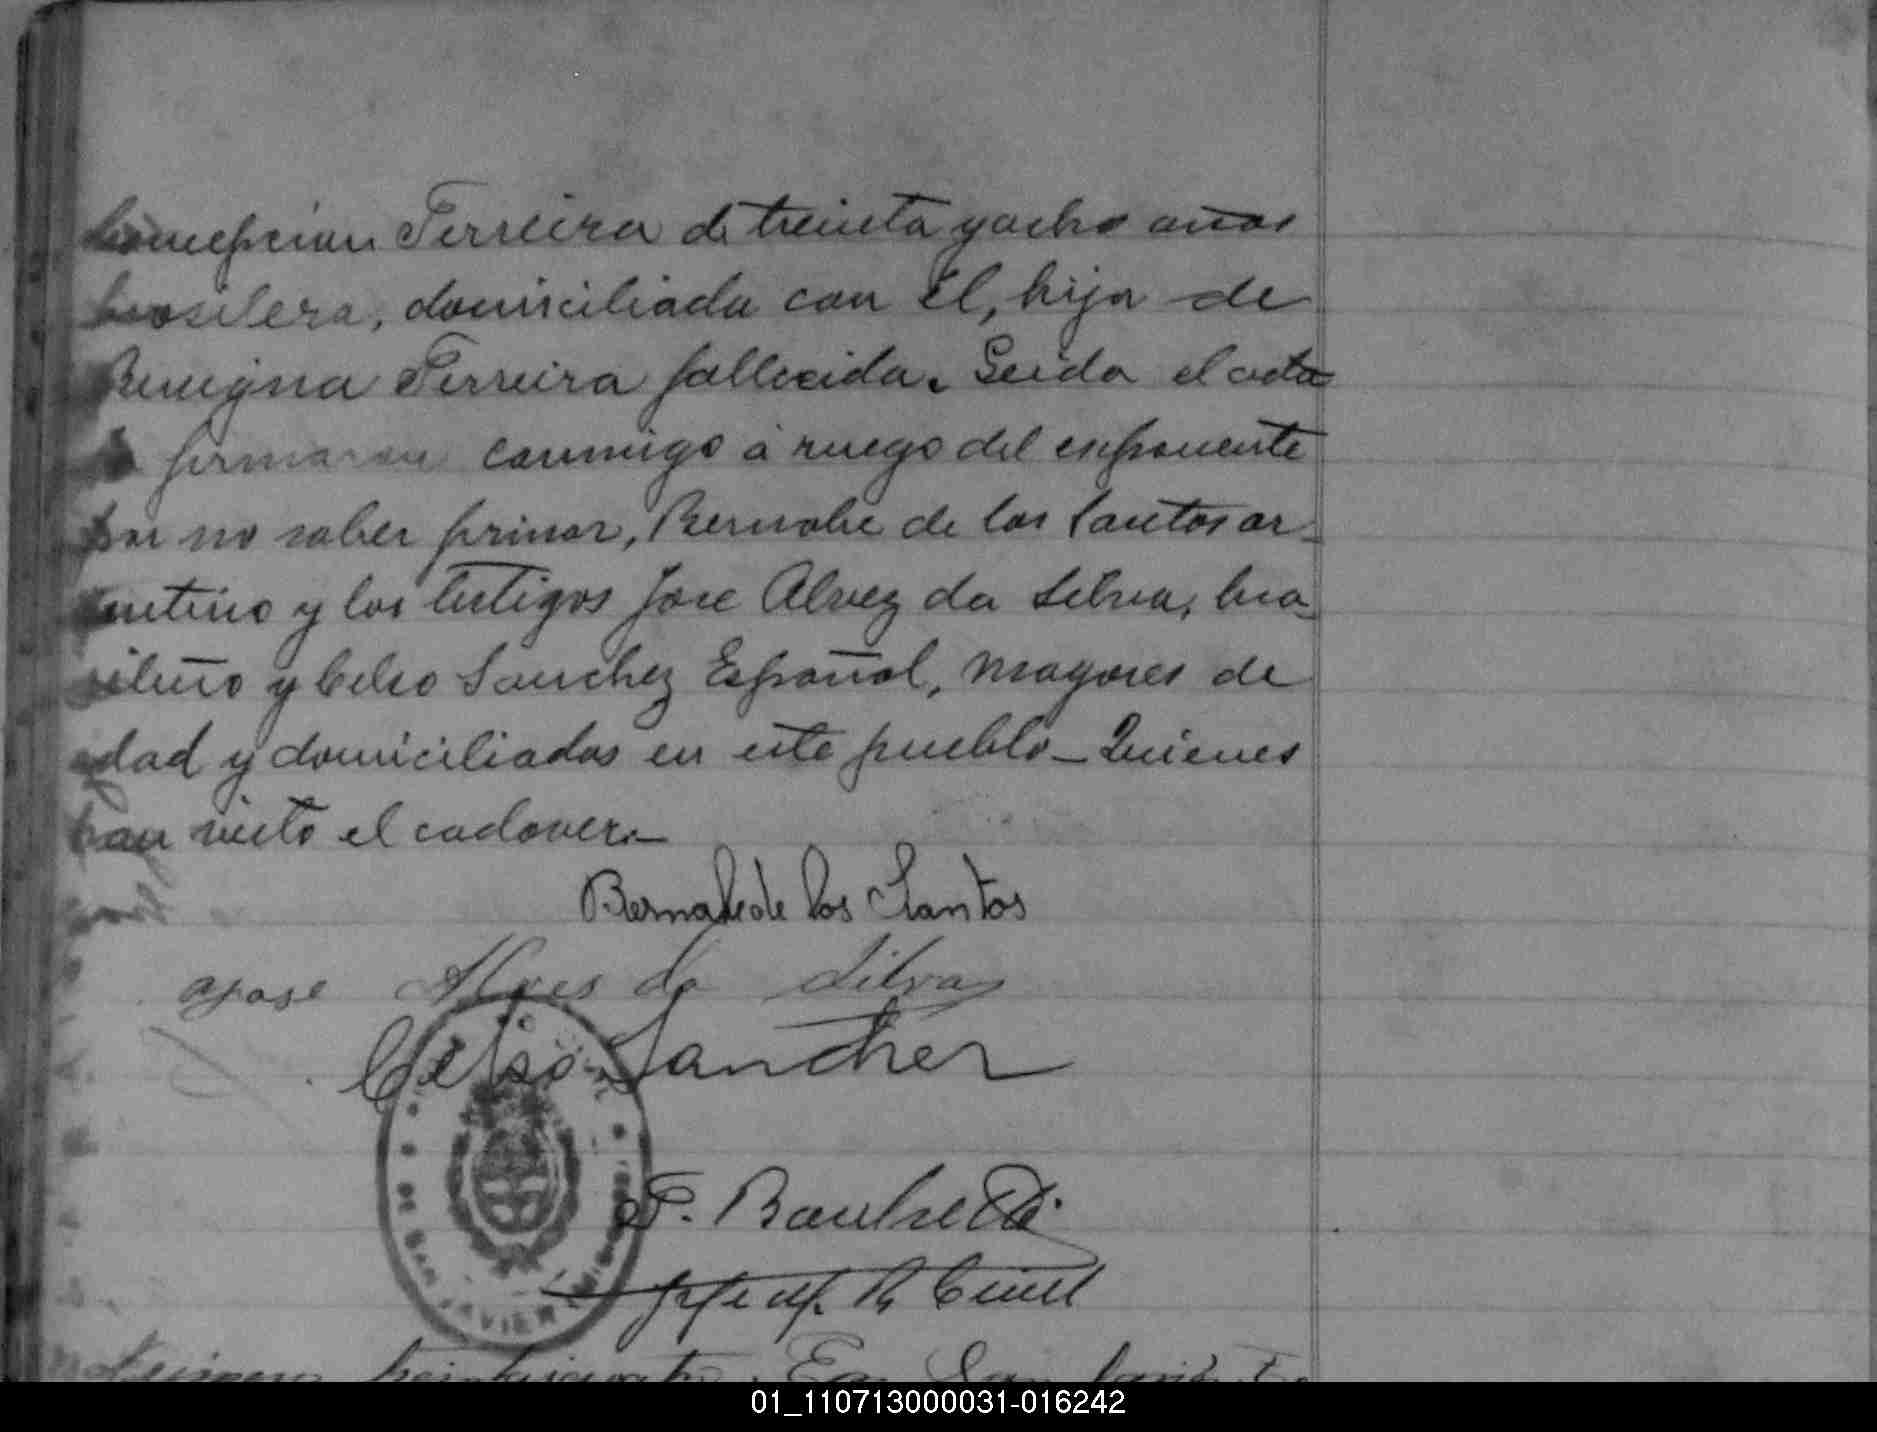 Concepcion Ferreira de treinta y ocho años
brasilera, domiciliada con él, hija de
Benigna Ferreira fallecida. Leida el acta
la firmaron conmigo á ruego del exponente
por no saber firmar, Bernabe de los Santos ar-
gentino y los testigos Jose Alvez da Silva, bra-
sileño y Celso Sanchez Español, mayores de
edad y domiciliados en este pueblo_ Quienes
han visto el cadaver._
Bernabe de los Santos
Jose Alves da Silva
Celso Sanchez
DE SAN JAVIER
Jefe del R. Civil
En San Javier
01_110713000031-016242